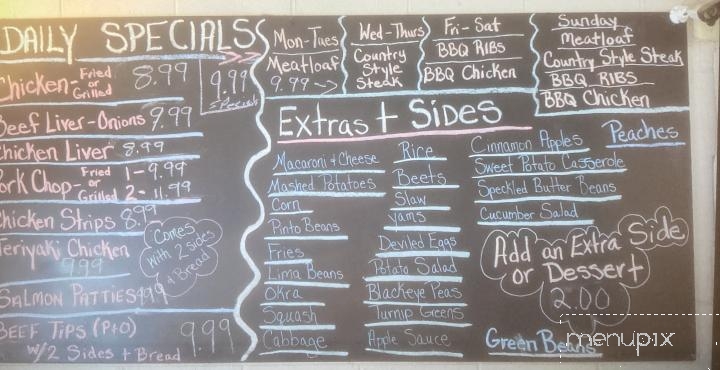 DAILY SPECIALS
Chicken - Fried or Grilled 8.99
Beef Liver - Onions 9.99
Chicken Liver 8.99
Pork Chop - Fried or Grilled 1 - 9.99 2 - 11.99
Chicken Strips 8.99
Teriyaki Chicken
9.99
SALMON PATTIES 9.99
BEEF TIPS (P+O) 9.99
w/2 Sides + Bread
Comes
with 2 sides
+ Bread
9.99
Specials
Mon-Tues
Meatloaf
9.99
Wed-Thurs
Country
Style
Steak
Fri - Sat
BBQ RIBS
BBQ Chicken
Sunday
Meatloaf
Country Style Steak
BBQ RIBS
BBQ Chicken
Extras + Sides
Macaroni + Cheese
Mashed Potatoes
Corn
Pinto Beans
Fries
Lima Beans
Okra
Squash
Cabbage
Rice
Beets
Slaw
yams
Deviled Eggs
Potato Salad
Blackeye Peas
Turnip Greens
Apple Sauce
Cinnamon Apples
Sweet Potato Casserole
Speckled Butter Beans
Cucumber Salad
Peaches
Add an Extra Side
or Dessert
2.00
Green Beans
menupix